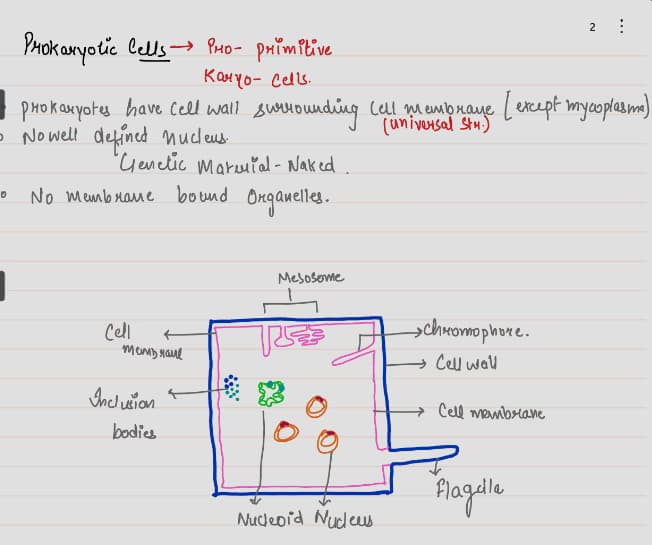 2
Prokaryotic Cells → Pro- primitive
Karyo- Cells.
Prokaryotes have cell wall surrounding cell membrane [except mycoplasma)
(universal str.)
No well defined nucleus.
Genetic Material-Naked.
No membrane bound Organelles.
Mesosome
Cell membrane
Chromophore.
Cell wall
Inclusion bodies
Cell membrane
Flagella
Nucleoid Nucleus